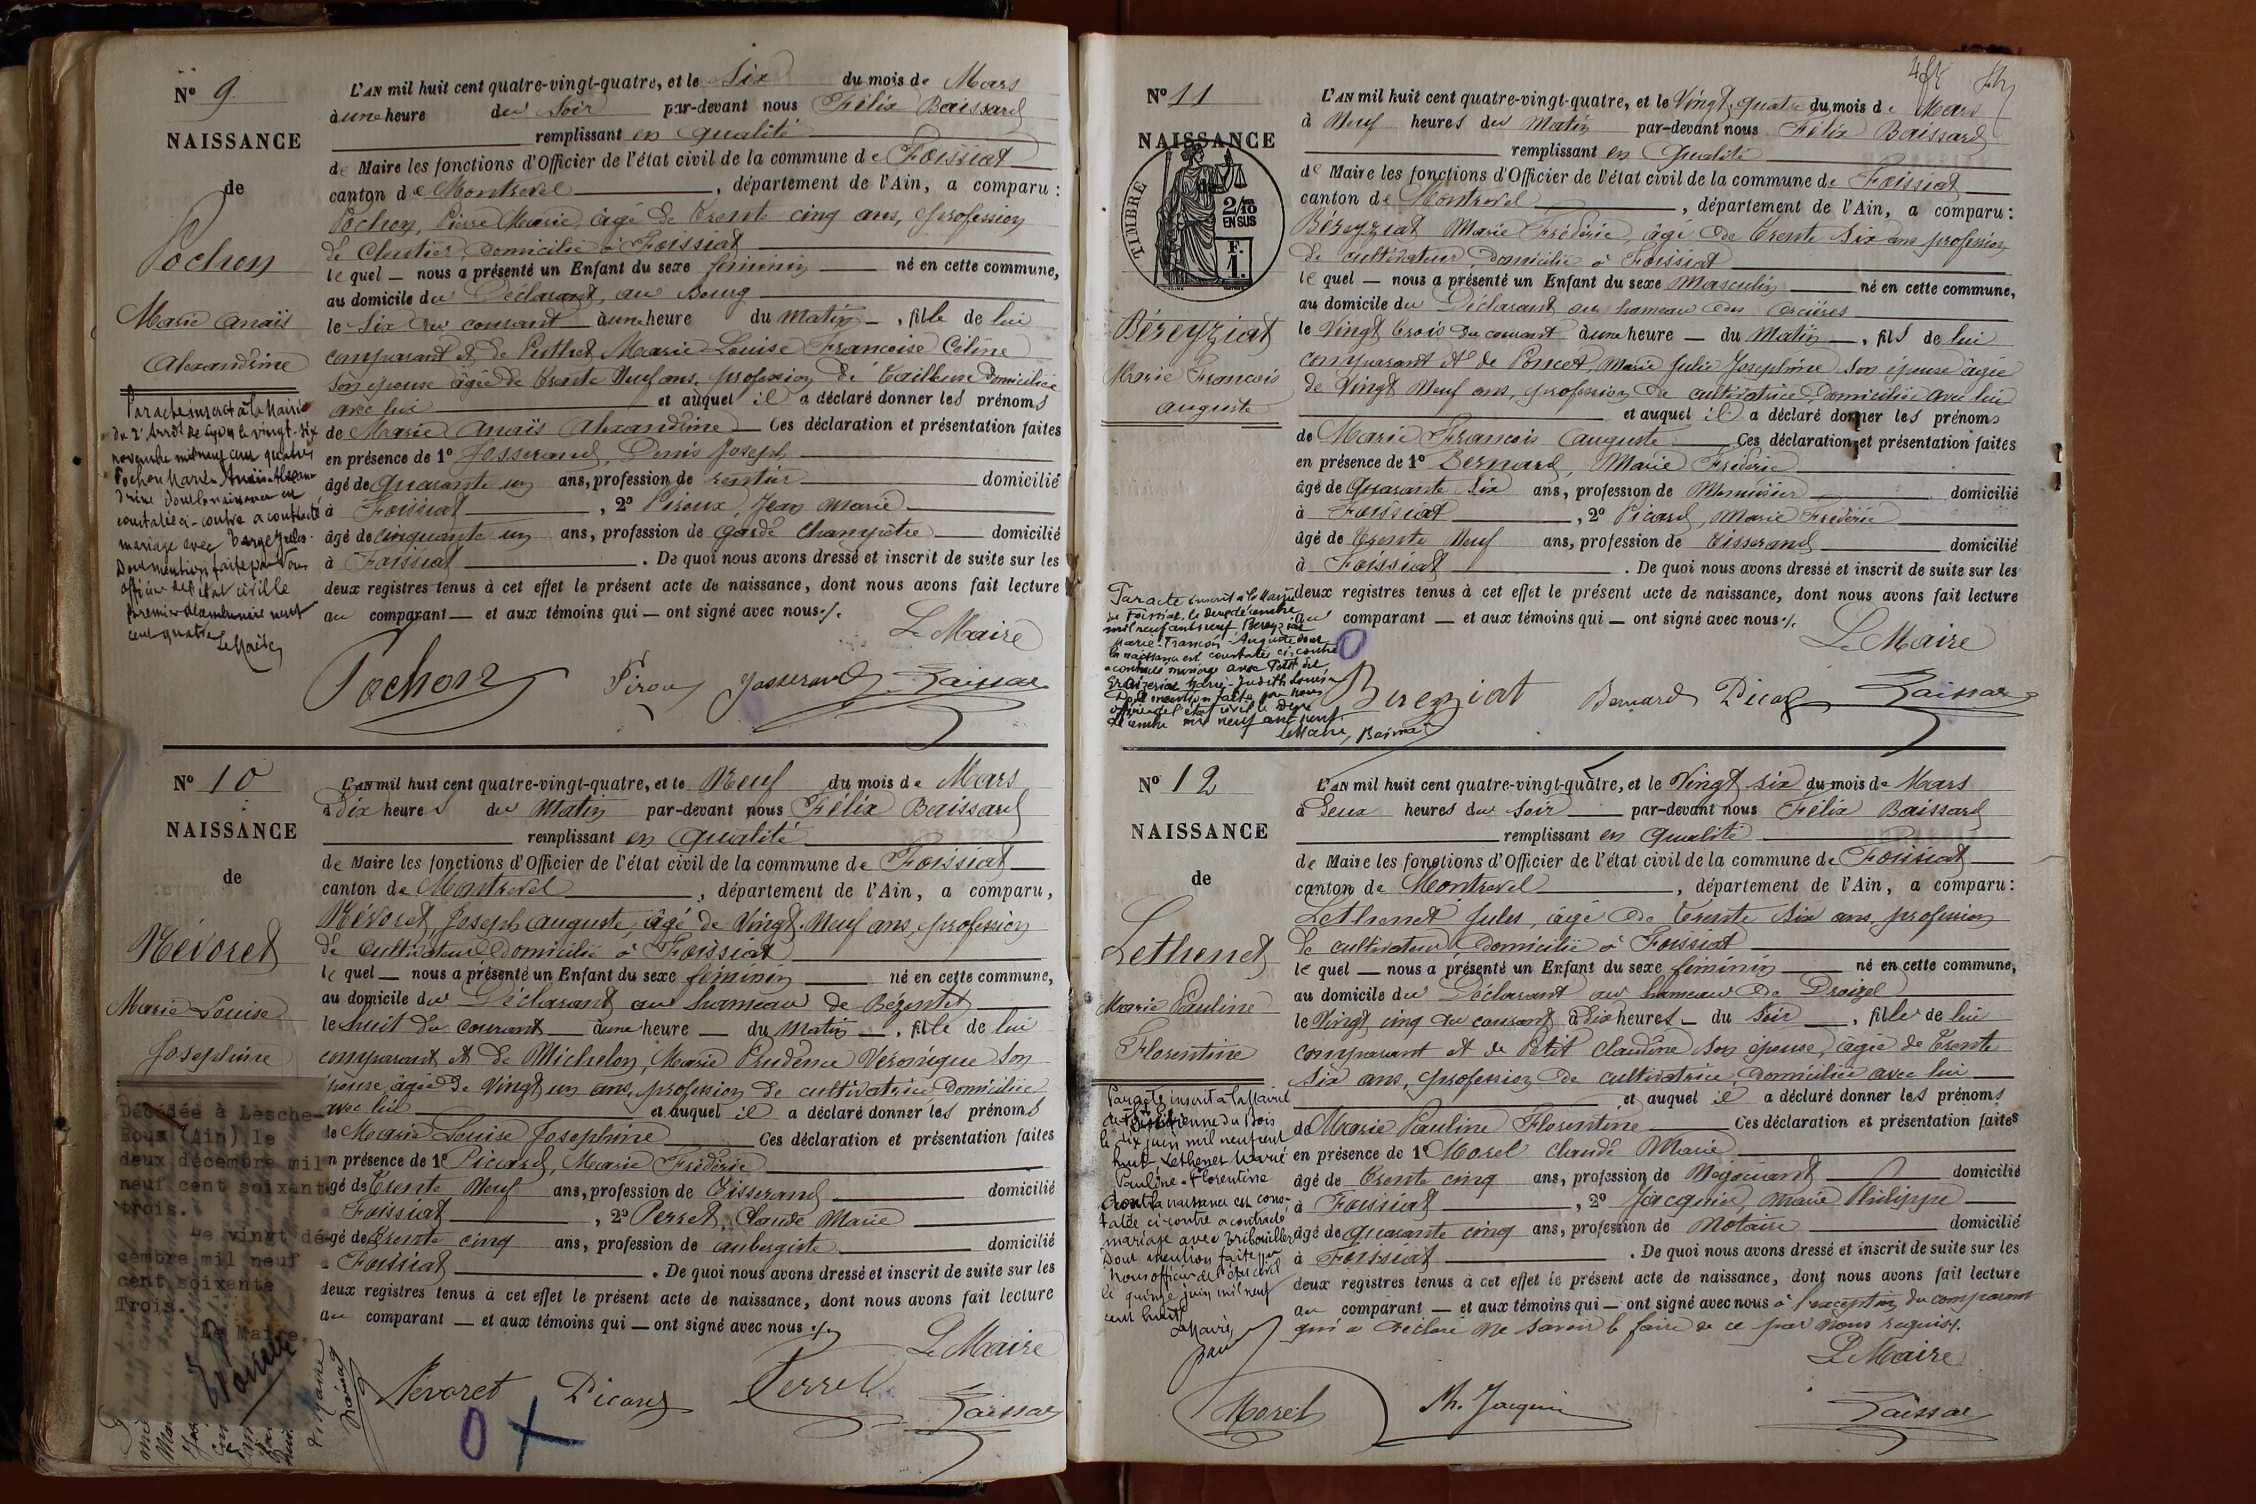 N° 9
NAISSANCE
de
Pochon
Marie Anaïs
Alexandrine
Par acte inscrit à la Mairie
du 2e Arrdt de Lyon le vingt-six
novembre mil neuf cent quatre
Pochon Marie Anaïs Alexan-
drine dont la naissance est
constatée ci-contre a contracté
mariage avec
Dont mention faite par Nous
officier de l'état civil le
premier décembre mil neuf
cent quatre
Le Maire
L'AN mil huit cent quatre-vingt-quatre, et le Six du mois de Mars
à une heure du Soir par-devant nous Félix Baissard
remplissant en qualité
de Maire les fonctions d'Officier de l'état civil de la commune de Foissiat
canton de Montrevel, département de l'Ain, a comparu :
Pochon, Pierre Marie, âgé de trente cinq ans, profession
de domicilié à Foissiat
le quel — nous a présenté un Enfant du sexe féminin né en cette commune,
au domicile du Déclarant, au Bourg
le Six du courant à une heure du Matin, fille de lui
comparant et de Puthet Marie Louise Françoise Céline
son épouse âgée de trente neuf ans, profession de tailleuse domiciliée
avec lui et auquel il a déclaré donner les prénoms
de Marie Anaïs Alexandrine Ces déclaration et présentation faites
en présence de 1° Josserand, Denis Joseph
âgé de quarante un ans, profession de rentier domicilié
à Foissiat, 2° Piroux, Jean Marie
âgé de cinquante un ans, profession de garde champêtre domicilié
à Foissiat. De quoi nous avons dressé et inscrit de suite sur les
deux registres tenus à cet effet le présent acte de naissance, dont nous avons fait lecture
au comparant — et aux témoins qui — ont signé avec nous ./.
Le Maire
Pochon Piroux Josserand Baissard
N° 10
NAISSANCE
de
Névoret
Marie Louise
Joséphine
Décédée à Lesche-
Roux (Ain) le
deux décembre mil
neuf cent soixante
trois.
Le vingt dé-
cembre mil neuf
cent soixante
Trois.
Le Maire,
L'AN mil huit cent quatre-vingt-quatre, et le Neuf du mois de Mars
à Dix heures du Matin par-devant nous Félix Baissard
remplissant en qualité
de Maire les fonctions d'Officier de l'état civil de la commune de Foissiat
canton de Montrevel, département de l'Ain, a comparu,
Névoret, Joseph Auguste, âgé de vingt-neuf ans, profession
de cultivateur domicilié à Foissiat
le quel — nous a présenté un Enfant du sexe féminin né en cette commune,
au domicile du Déclarant au hameau de Bézentet
le huit du courant à une heure — du Matin, fille de lui
comparant et de Michelon, Marie Prudence Véronique son
épouse âgée de vingt un ans, profession de cultivatrice domiciliée
avec lui et auquel il a déclaré donner les prénoms
de Marie Louise Joséphine Ces déclaration et présentation faites
en présence de 1° Piccard, Marie Frédéric
âgé de trente neuf ans, profession de Tisserand domicilié
à Foissiat, 2° Perret, Claude Marie
âgé de trente cinq ans, profession de aubergiste domicilié
à Foissiat. De quoi nous avons dressé et inscrit de suite sur les
deux registres tenus à cet effet le présent acte de naissance, dont nous avons fait lecture
au comparant — et aux témoins qui — ont signé avec nous ./.
Le Maire
Névoret Picard Perret Baissard
N° 11
NAISSANCE
de
TIMBRE
2/10 EN SUS
F. 1.
Béreyziat
Marie François
Auguste
Par acte inscrit à la Mairie
de Foissiat le deux décembre
mil neuf cent neuf Béreyziat
Marie-François-Auguste dont
la naissance est constatée ci-contre
a contracté mariage avec Petit dit
Graizeriat Marie-Judith Louisa
Dont mention faite par Nous
officier de l'état civil le deux
décembre mil neuf cent neuf.
Le Maire,
L'AN mil huit cent quatre-vingt-quatre, et le Vingt quatre du mois de Mars
à Neuf heures du Matin par-devant nous Félix Baissard
remplissant en qualité
de Maire les fonctions d'Officier de l'état civil de la commune de Foissiat
canton de Montrevel, département de l'Ain, a comparu :
Béreyziat Marie Frédéric, âgé de trente six ans profession
de cultivateur, domicilié à Foissiat
le quel — nous a présenté un Enfant du sexe masculin né en cette commune,
au domicile du Déclarant au hameau des
le Vingt trois du courant à une heure — du Matin —, fils de lui
comparant et de Poncet, Marie Julie Joséphine son épouse âgée
de vingt neuf ans, profession de cultivatrice, domiciliée avec lui
et auquel il a déclaré donner les prénoms
de Marie François Auguste Ces déclaration et présentation faites
en présence de 1° Bernard, Marie Frédéric
âgé de quarante six ans, profession de Menuisier domicilié
à Foissiat, 2° Picard, Marie Frédéric
âgé de trente neuf ans, profession de Tisserand domicilié
à Foissiat. De quoi nous avons dressé et inscrit de suite sur les
deux registres tenus à cet effet le présent acte de naissance, dont nous avons fait lecture
au comparant — et aux témoins qui — ont signé avec nous ./.
Le Maire
Béreyziat Bernard Picard Baissard
N° 12
NAISSANCE
de
Lethenet
Marie Pauline
Florentine
Par acte inscrit à la Mairie
de St Etienne du Bois
le dix juin mil neuf cent
huit Lethenet Marie
Pauline-Florentine
dont la naissance est cons-
tatée ci-contre a contracté
mariage avec Tribouillet
Dont mention faite par
Nous officier de l'état civil
le quinze juin mil neuf
cent huit
Le Maire,
L'AN mil huit cent quatre-vingt-quatre, et le Vingt six du mois de Mars
à Deux heures du Soir par-devant nous Félix Baissard
remplissant en qualité
de Maire les fonctions d'Officier de l'état civil de la commune de Foissiat
canton de Montrevel, département de l'Ain, a comparu :
Lethenet Jules, âgé de trente six ans, profession
de cultivateur, domicilié à Foissiat
le quel — nous a présenté un Enfant du sexe féminin né en cette commune,
au domicile du Déclarant au hameau de Droizel
le Vingt cinq du courant à Dix heures — du Soir, fille de lui
comparant et de Petit Claudine son épouse, âgée de trente
six ans, profession de cultivatrice, domiciliée avec lui
et auquel il a déclaré donner les prénoms
de Marie Pauline Florentine Ces déclaration et présentation faites
en présence de 1° Morel Claude Marie
âgé de trente cinq ans, profession de Négociant domicilié
à Foissiat, 2° Jacquin, Marie Philippe
âgé de quarante cinq ans, profession de Notaire domicilié
à Foissiat. De quoi nous avons dressé et inscrit de suite sur les
deux registres tenus à cet effet le présent acte de naissance, dont nous avons fait lecture
au comparant — et aux témoins qui — ont signé avec nous à l'exception du comparant
qui a déclaré ne savoir le faire de ce par nous requis ./.
Le Maire
Morel Ph. Jacquin Baissard